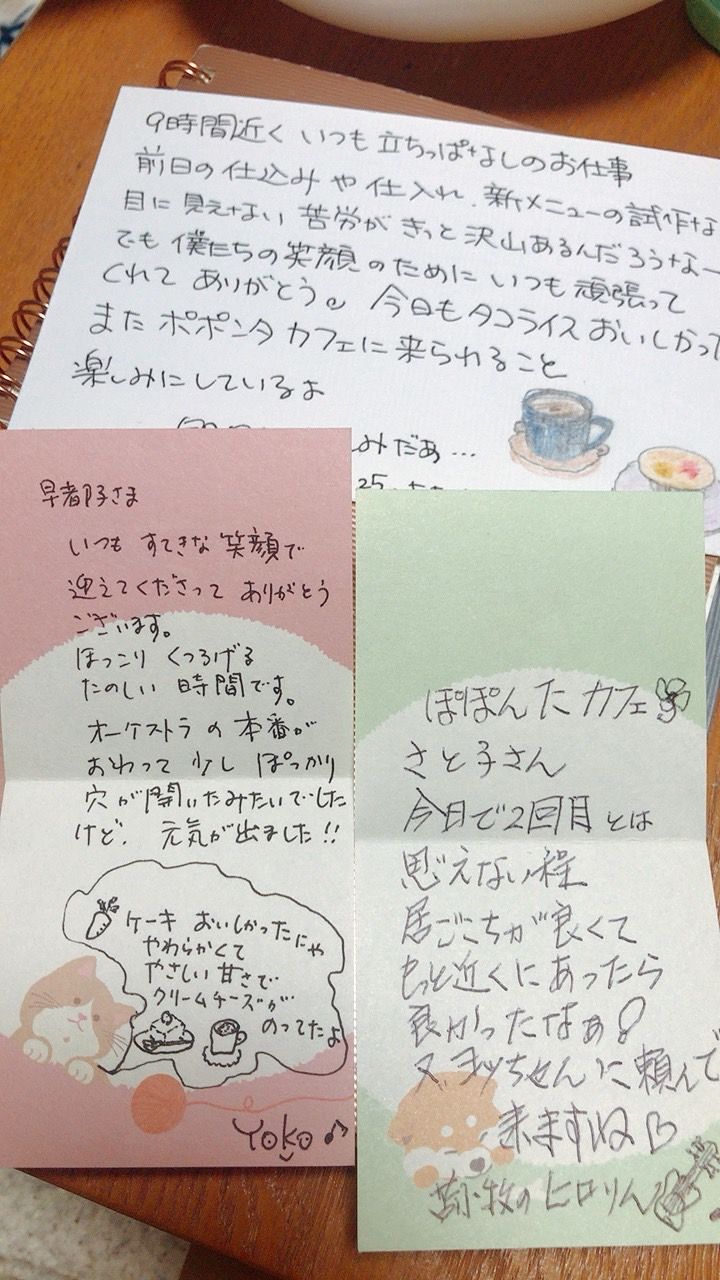 9時間近く いつも 立ちっぱなしのお仕事
前日の仕込みや仕入れ、新メニューの試作な
目に見えない苦労がきっと沢山あるんだろうなー
でも僕たちの笑顔のためにいつも頑張って
くれてありがとう。今日もタコライスおいしかって
またポポンタカフェに来られること
楽しみにしているよ
みだぁ…
25
早都子さま
いつも すてきな笑顔で
迎えてくださって ありがとう
ございます。
ほっこり くつろげる
たのしい 時間です。
オーケストラの本番が
おわって 少し ぽっかり
穴が開いたみたいでした
けど、元気が出ました!!
ケーキ おいしかったにゃ
やわらかくて
やさしい甘さで
クリームチーズが
のってたよ
Yoko♪
ぽぽんたカフェ
さと子さん
今日で2回目とは
思えない程
居ごこちが良くて
もっと近くにあったら
良かったなぁ!
又、ヨッちゃんに頼んで
来ますね♡
苫小牧のヒロりん